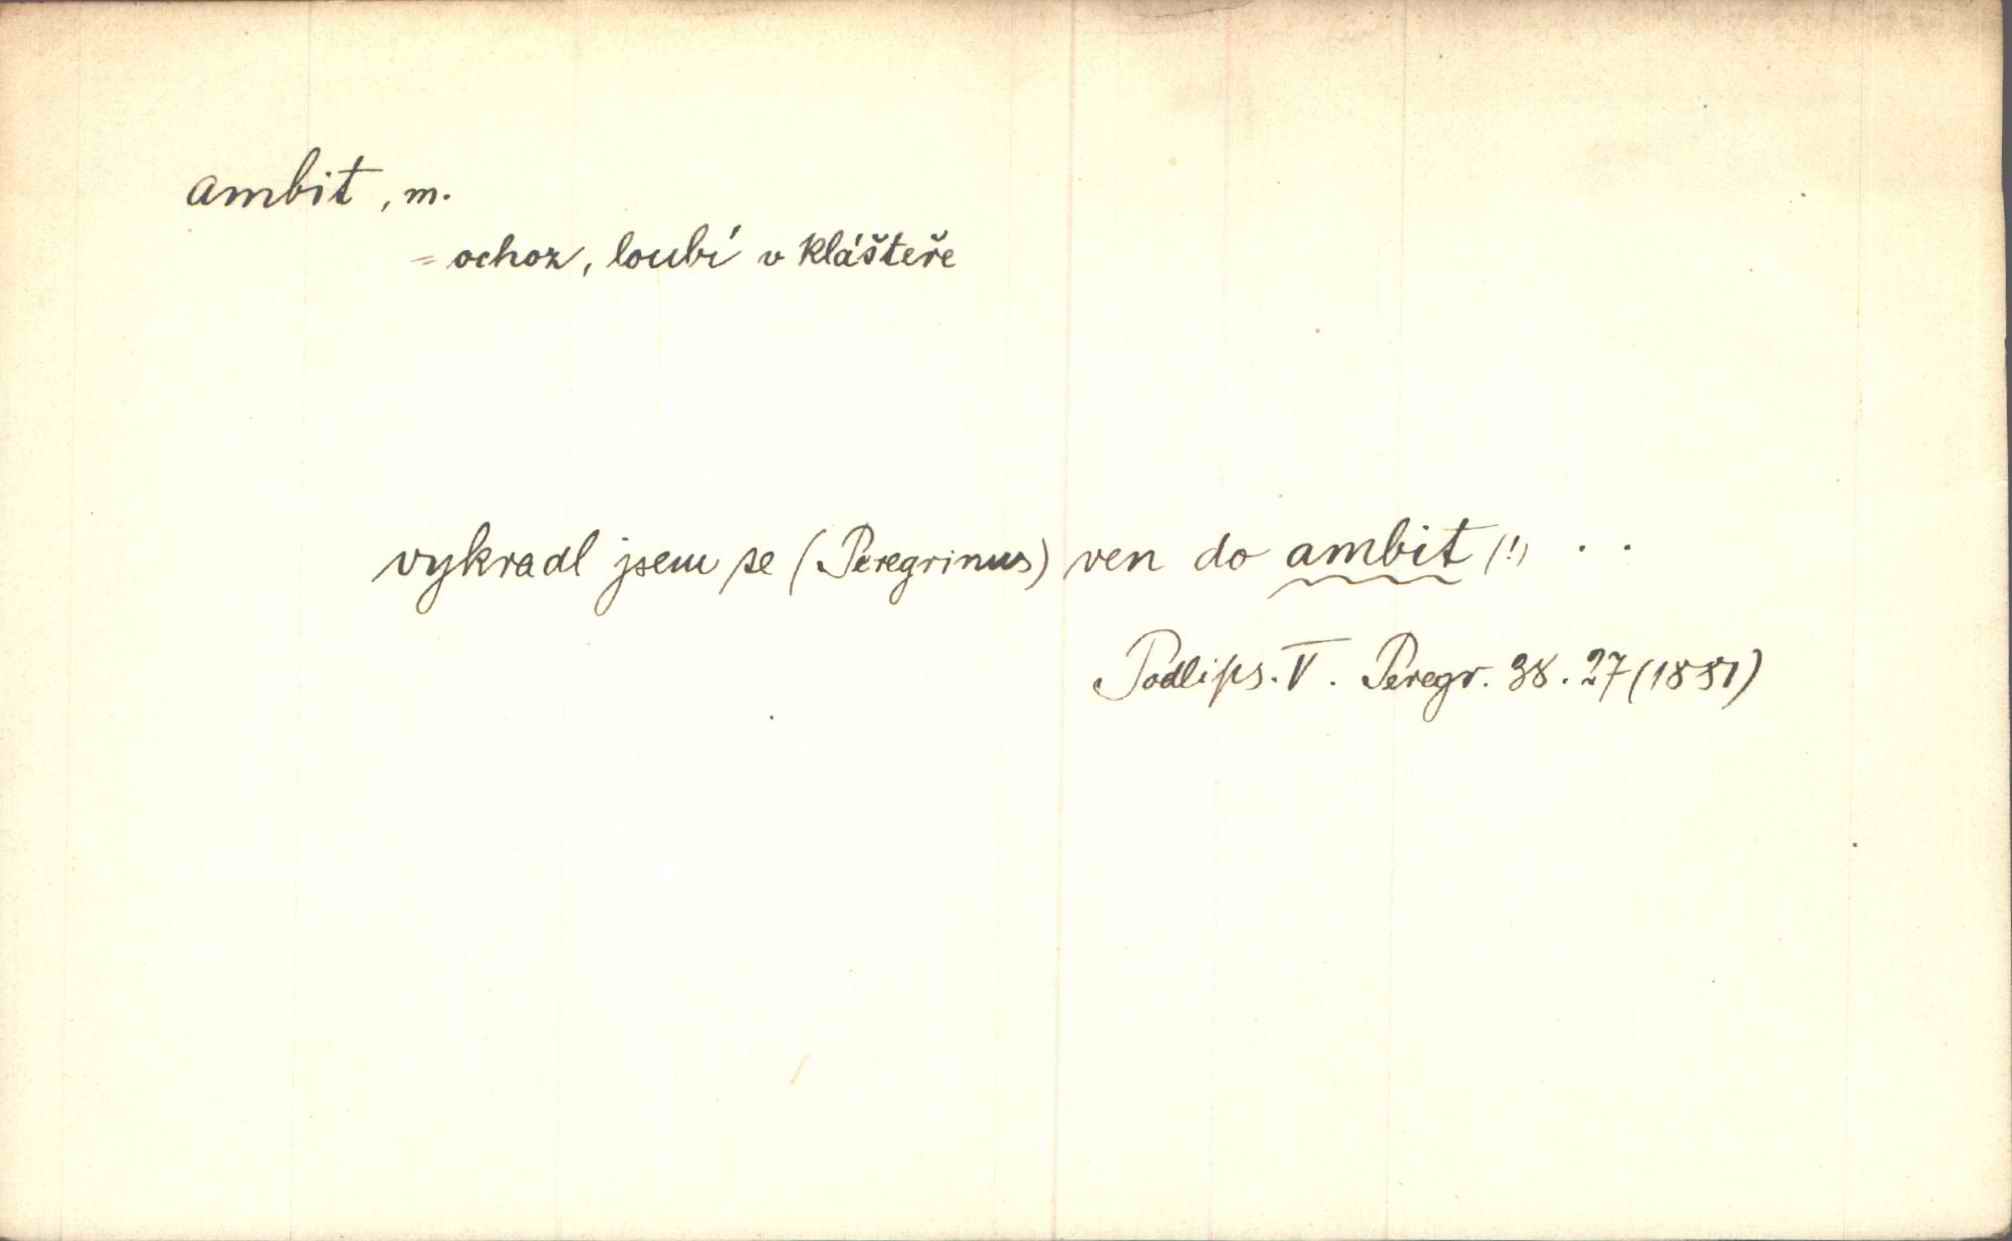 ambit, m.
= ochoz, loubí v klášteře
vykradl jsem se (Peregrinus) ven do ambit (!) . .
Podlips. V. Peregr. 38. 27 (1881)